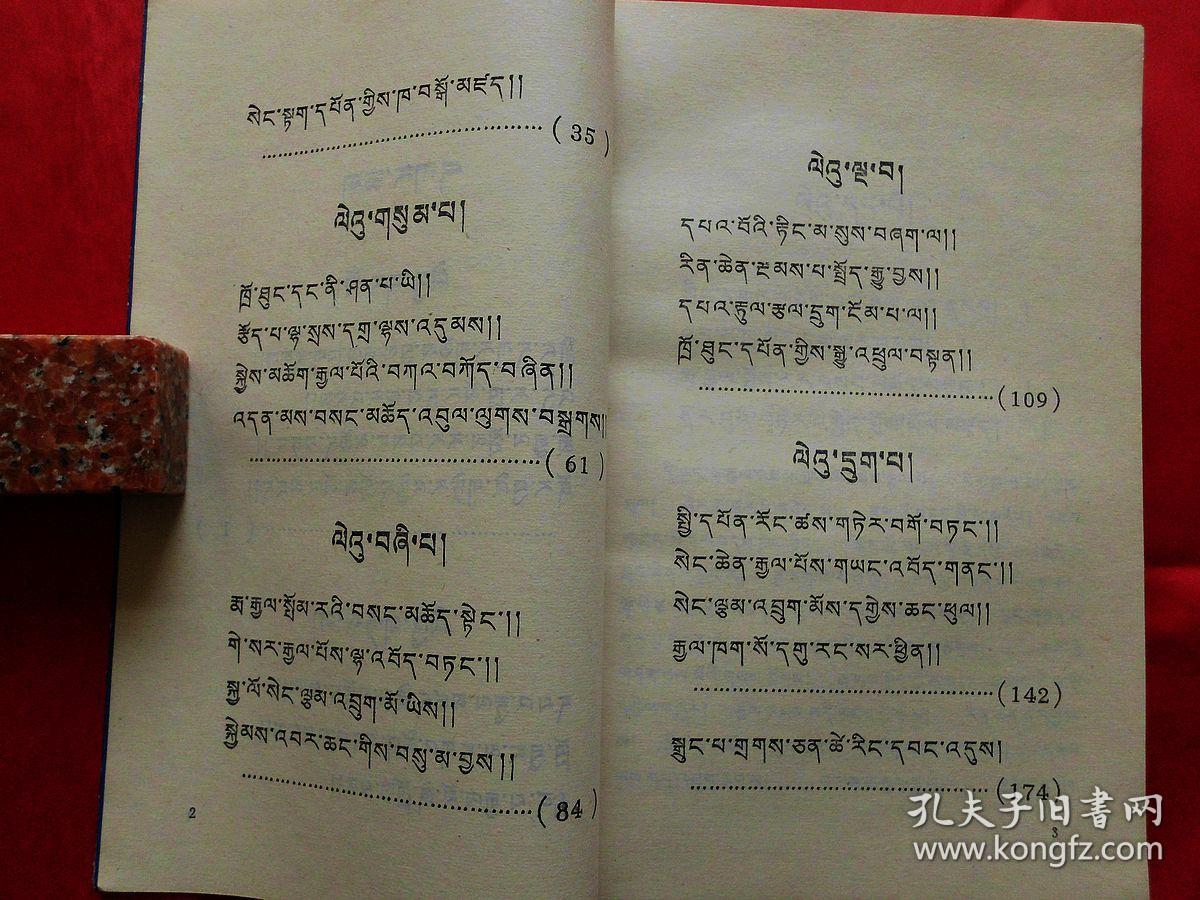 སེང་སྟག་དཔོན་གྱིས་ཁ་བསྒོ་མཛད།།
(35)
ལེའུ་གསུམ་པ།
ཁྲོ་ཐུང་དང་ནི་ཤན་པ་ཡི།།
རྩོད་པ་ལྷ་སྲས་དགྲ་ལྷས་འདུམས།།
སྐྱེས་མཆོག་རྒྱལ་པོའི་བཀའ་བཀོད་བཞིན།།
འདན་མས་བསང་མཆོད་འབུལ་ལུགས་བསྒྲགས།
(61)
ལེའུ་བཞི་པ།
རྨ་རྒྱལ་སྤོམ་རའི་བསང་མཆོད་སྟེང་།།
གེ་སར་རྒྱལ་པོས་ལྷ་འབོད་བཏང་།།
སྐྱ་ལོ་སེང་ལྕམ་འབྲུག་མོ་ཡིས།།
སྐྱེམས་འབར་ཆང་གིས་བསུ་མ་བྱས།།
(84)
2
ལེའུ་ལྔ་བ།
དཔའ་བོའི་རྟིང་མ་སུས་བཞག་ལ།།
རིན་ཆེན་ཇ་མས་པ་སྤྲོད་རྒྱུ་བྱས།།
དཔའ་རྟུལ་རྩལ་དྲུག་ངོམ་པ་ལ།།
ཁྲོ་ཐུང་དཔོན་གྱིས་སྒྱུ་འཕྲུལ་བསྟན།།
(109)
ལེའུ་དྲུག་པ།
སྤྱི་དཔོན་རོང་ཚས་གཏེར་བགོ་བཏང་།།
སེང་ཆེན་རྒྱལ་པོས་གཡང་འབོད་གནང་།།
སེང་ལྕམ་འབྲུག་མོས་དགྱེས་ཆང་ཕུལ།།
རྒྱལ་ཁག་སོ་དགུ་རང་སར་ཕྱིན།།
(142)
སྒྲུང་པ་གྲགས་ཅན་ཚེ་རིང་དབང་འདུས།
(174)
3
孔夫子旧书网
www.kongfz.com